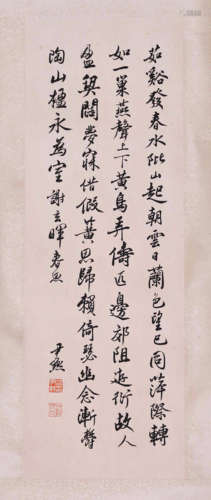 茹谿發春水阰山起朝雲日蘭色望已同萍際轉
如一巢燕聲上下黃鳥弄儔匹邊郊阻遊衍故人
盈契闊夢寐借假簧思歸賴倚瑟幽念漸鬱
陶山楹永為室 謝玄暉春思
尹默